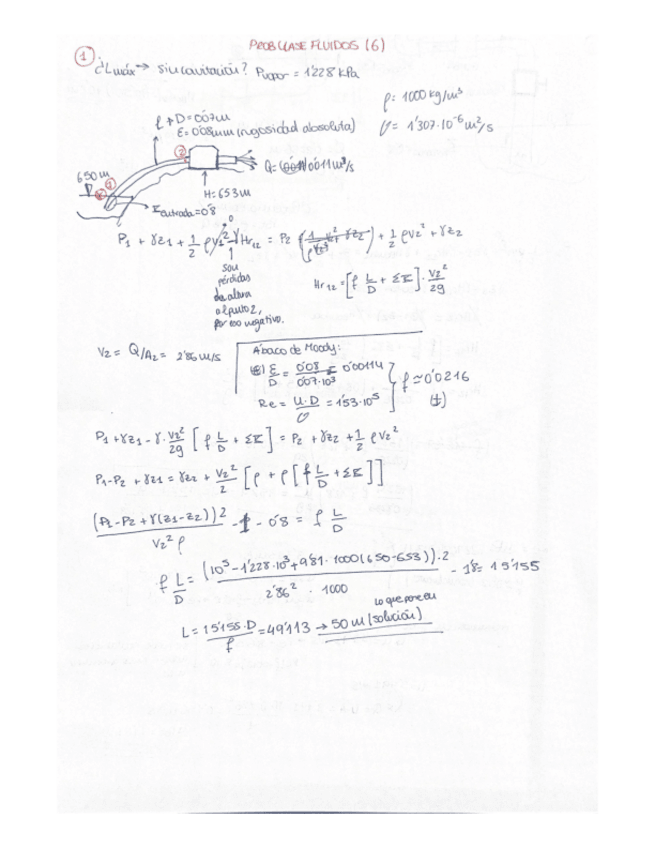 PROB CLASE FLUIDOS (6)
1 ¿Lmáx → sin cavitación? Pvapor = 1'228 kPa
ρ = 1000 kg/m³
ℓ + D = 0'07m
ε = 0'08mm (rugosidad absoluta)
υ = 1'307·10⁻⁶ m²/s
2
Q = 0'011m³/s
650m
1
H = 653m
Kentrada = 0'8
P₁ + γz₁ + 1/2 ρV₁² - γHr₁₂ = P₂ + 1/2 ρV₂² + γz₂
0
son
pérdidas
de altura
al punto 2,
por eso negativo.
Hr₁₂ = [f L/D + ΣK] · V₂²/2g
V₂ = Q/A₂ = 2'86 m/s
Ábaco de Moody:
ε/D = 0'08/0'07·10³ = 0'00114
f ≃ 0'0216
Re = U·D/υ = 1'53·10⁵
P₁ + γz₁ - γ · V₂²/2g [f L/D + ΣK] = P₂ + γz₂ + 1/2 ρV₂²
P₁-P₂ + γz₁ = γz₂ + V₂²/2 [ρ + ρ[f L/D + ΣK]]
(P₁-P₂ + γ(z₁-z₂))2 / V₂²ρ - 1 - 0'8 = f L/D
f L/D = (10⁵ - 1'228·10³ + 9'81·1000(650-653))·2 / 2'86² · 1000 - 1'8 = 15'155
lo que pone en
L = 15'155·D/f = 49'113 → 50 m (solución)